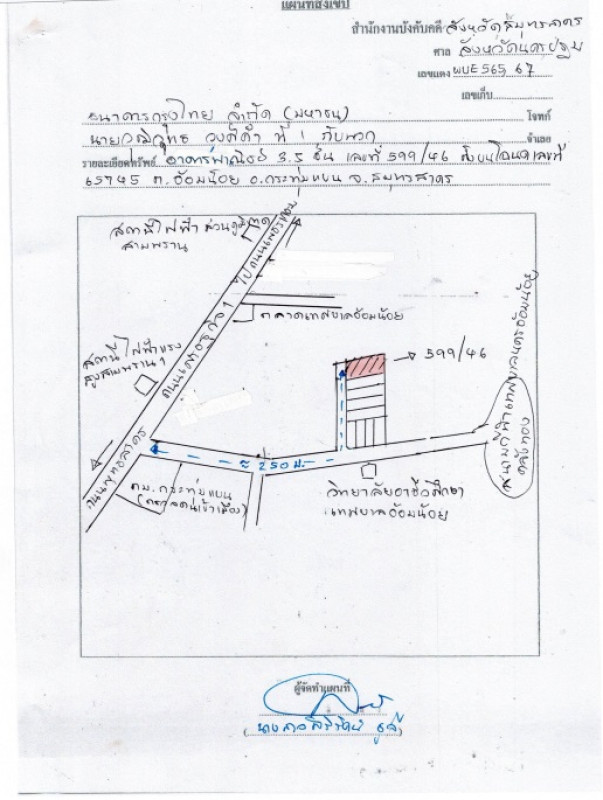 แผนที่สังเขป
สำนักงานบังคับคดี จังหวัดสมุทรสาคร
ศาล จังหวัดนครปฐม
เลขแดง ผบE565/67
เลขเก็บ
ธนาคารกรุงไทย จำกัด (มหาชน) โจทก์
นายวุฒิวุทธ วงศ์คำ ที่ 1 กับพวก จำเลย
รายละเอียดทรัพย์ อาคารพาณิชย์ 3.5 ชั้น เลขที่ 599/46 ตั้งบนโฉนดเลขที่
65745 ต.อ้อมน้อย อ.กระทุ่มแบน จ.สมุทรสาคร
สถานีไฟฟ้า
สามพราน
ไปถนนเพชรเกษม
ตลาดเทศบาลอ้อมน้อย
ถนนเศรษฐกิจ 1
สถานีไฟฟ้าแรง
สูงสามพราน 1
599/46
ถนนพุทธสาคร
≈ 250 ม.
ถม.กระทุ่มแบน
วิทยาลัยอาชีวศึกษา
เทศบาลอ้อมน้อย
ผู้จัดทำแผนที่